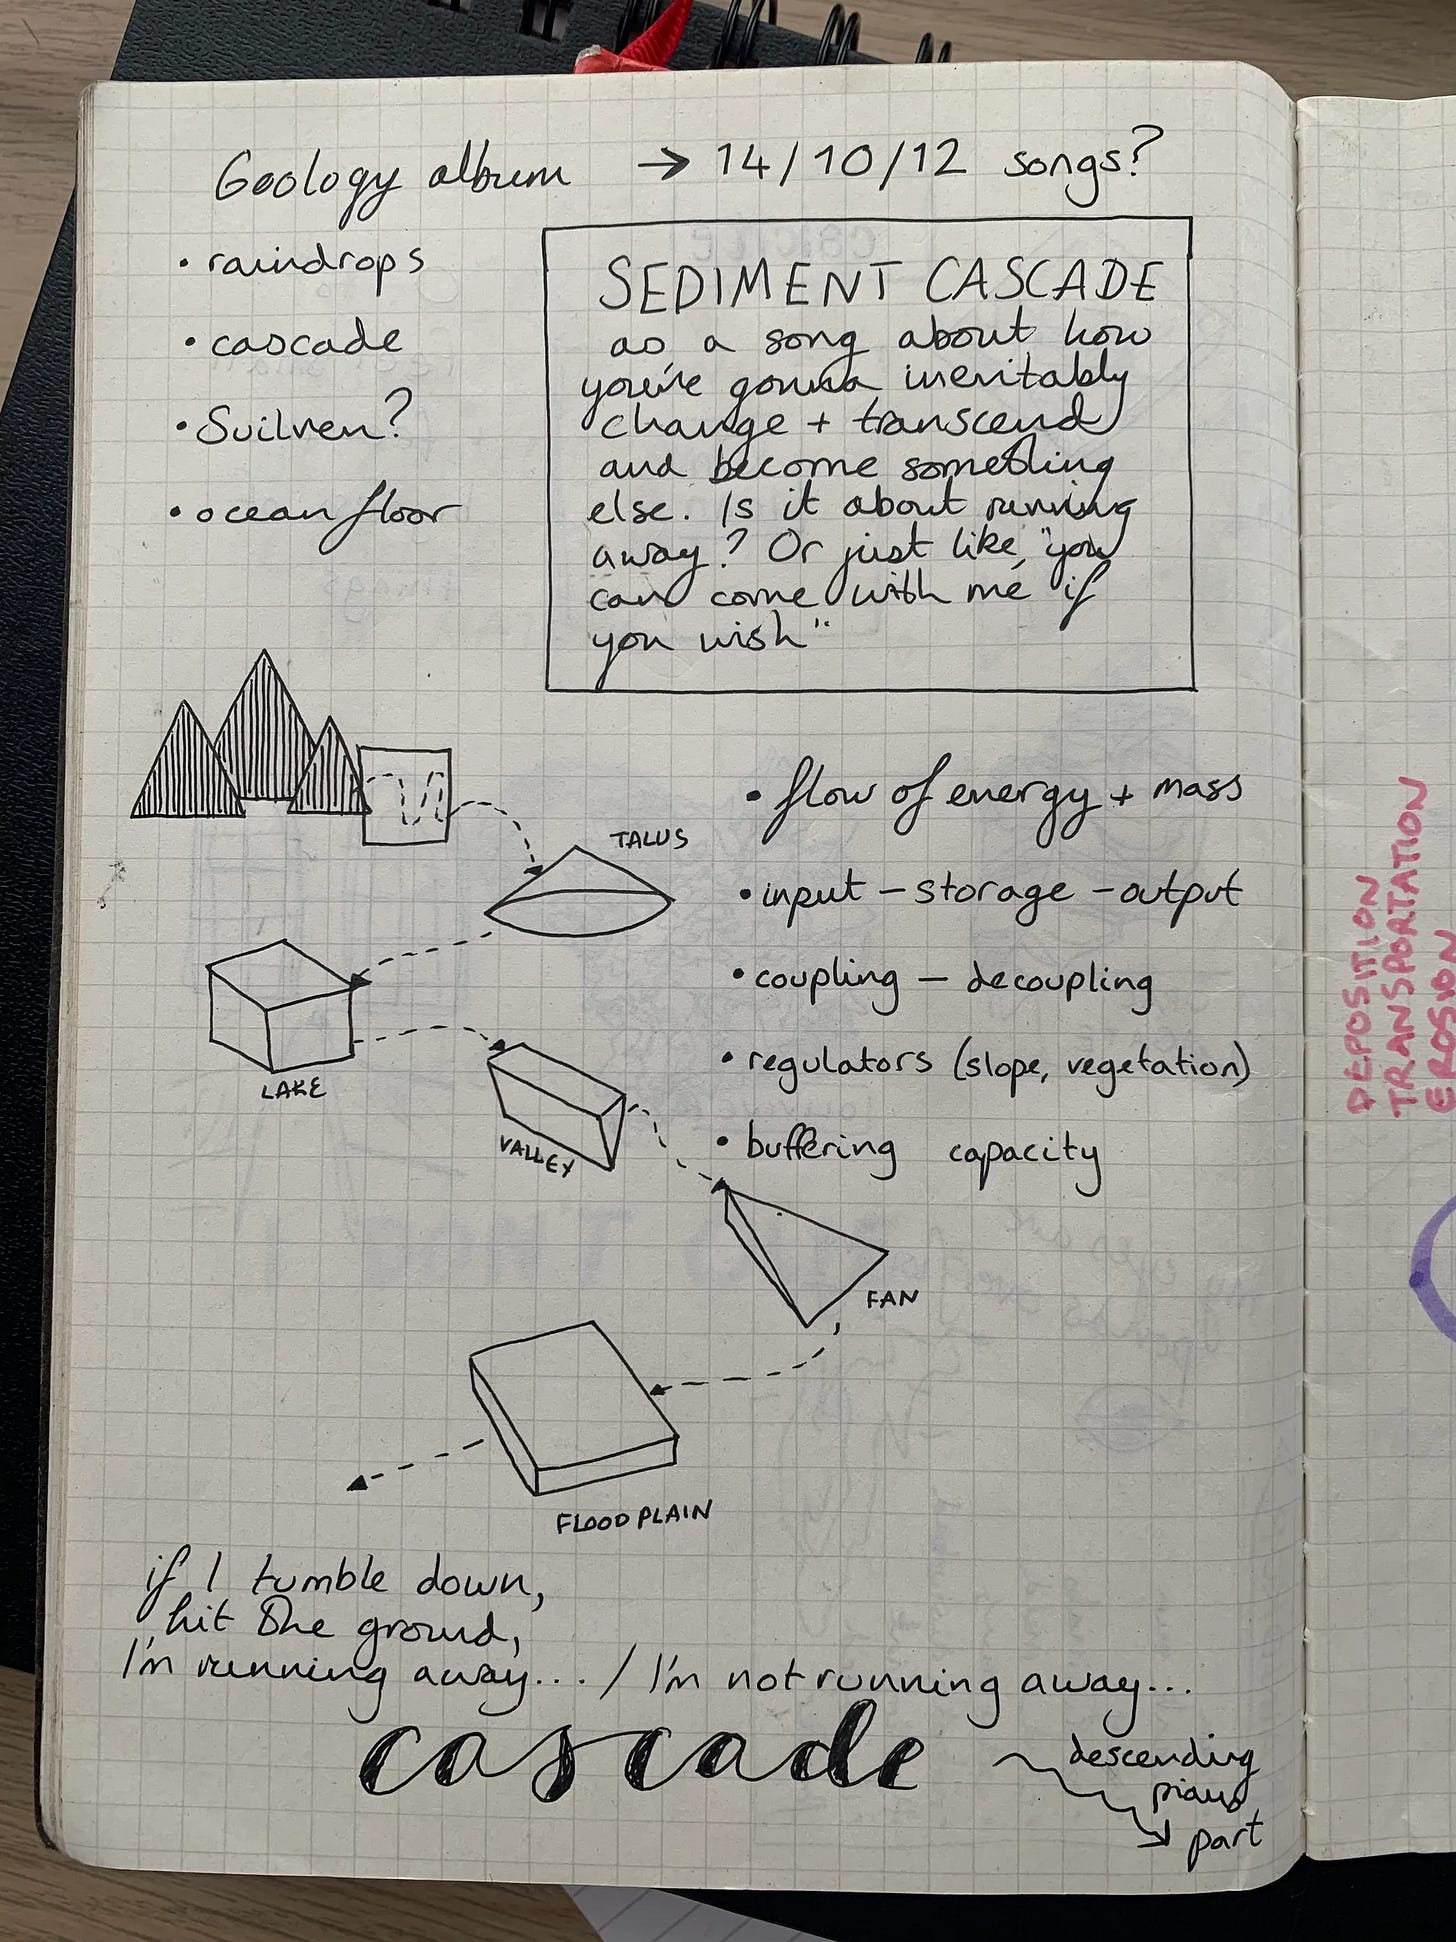 Geology album → 14/10/12 songs?
• raindrops
• cascade
• Suilven?
• ocean floor
SEDIMENT CASCADE
as a song about how
you're gonna inevitably
change + transcend
and become something
else. Is it about running
away? Or just like, "you
can come with me if
you wish"
TALUS
LAKE
VALLEY
FAN
FLOOD PLAIN
• flow of energy + mass
• input - storage - output
• coupling - decoupling
• regulators (slope, vegetation)
• buffering capacity
if I tumble down,
hit the ground,
I'm running away... / I'm not running away...
cascade
descending
piano
part
DEPOSITION
TRANSPORTATION
EROSION